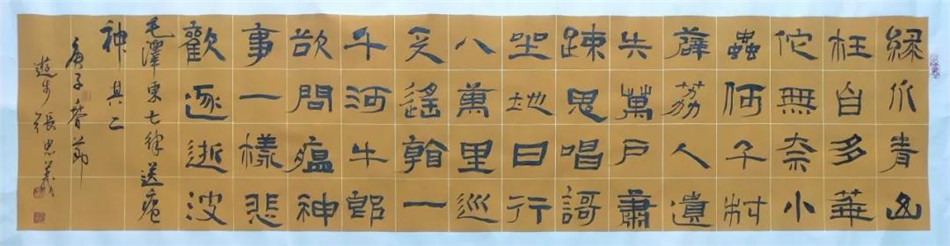 緑水青山
枉自多華
佗無奈小
蟲何千村
薜荔人遺
矢萬戶蕭
踈鬼唱謌
坐地日行
八萬里巡
天遙看一
千河牛郎
欲問瘟神
事一樣悲
歡逐逝波
毛澤東七律送瘟
神 其二
庚子春節
張忠義